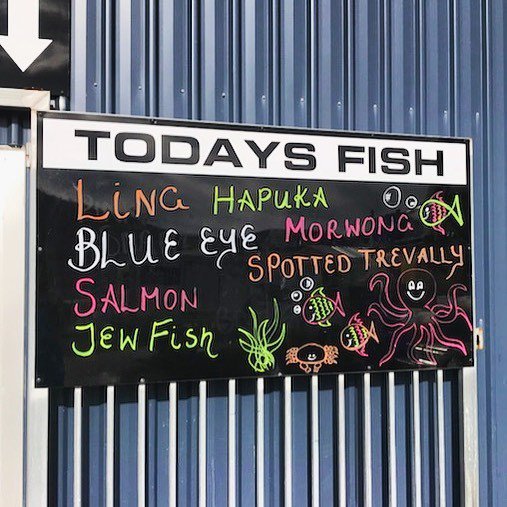 TODAYS FISH
LING HAPUKA
BLUE EYE MORWONG
SPOTTED TREVALLY
SALMON
JEW FISH